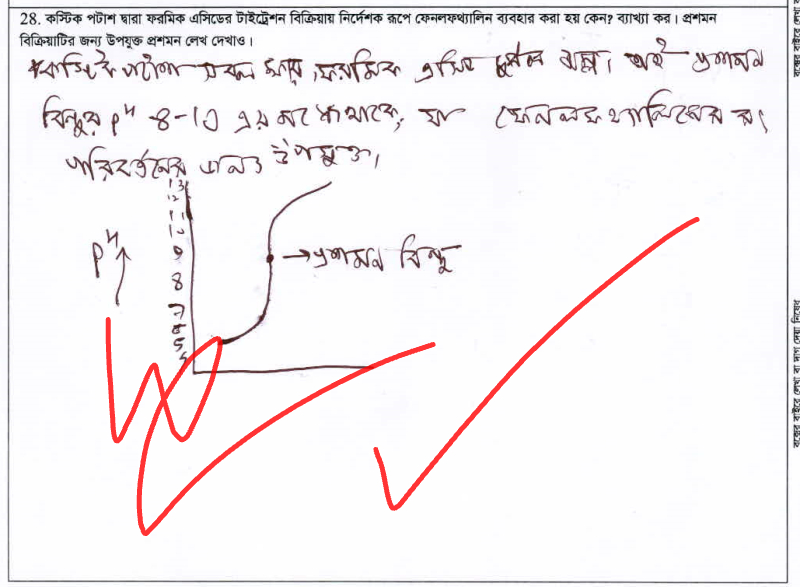 28. কস্টিক পটাশ দ্বারা ফরমিক এসিডের টাইট্রেশন বিক্রিয়ায় নির্দেশক রূপে ফেনলফথ্যালিন ব্যবহার করা হয় কেন? ব্যাখ্যা কর। প্রশমন
বিক্রিয়াটির জন্য উপযুক্ত প্রশমন লেখ দেখাও।
কস্টিক পটাশ সবল ক্ষার, ফরমিক এসিড দুর্বল অম্ল। তাই প্রশমন
বিন্দুর pH 8-10 এর মধ্যে থাকে, যা ফেনলফথ্যালিনের রং
পরিবর্তনের জন্য উপযুক্ত।
13
12
11
10
9
8
7
6
5
4
pH
→প্রশমন বিন্দু